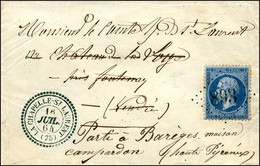 Monsieur le Comte M. D. St Laurent
au Château de la Loge
près fontenay
(Vendée)
Parti à Barèges, maison
Campardon (hautes Pyrénées)
LA CHAPELLE-ST-LAURENT
16
JUIL.
64
(75)